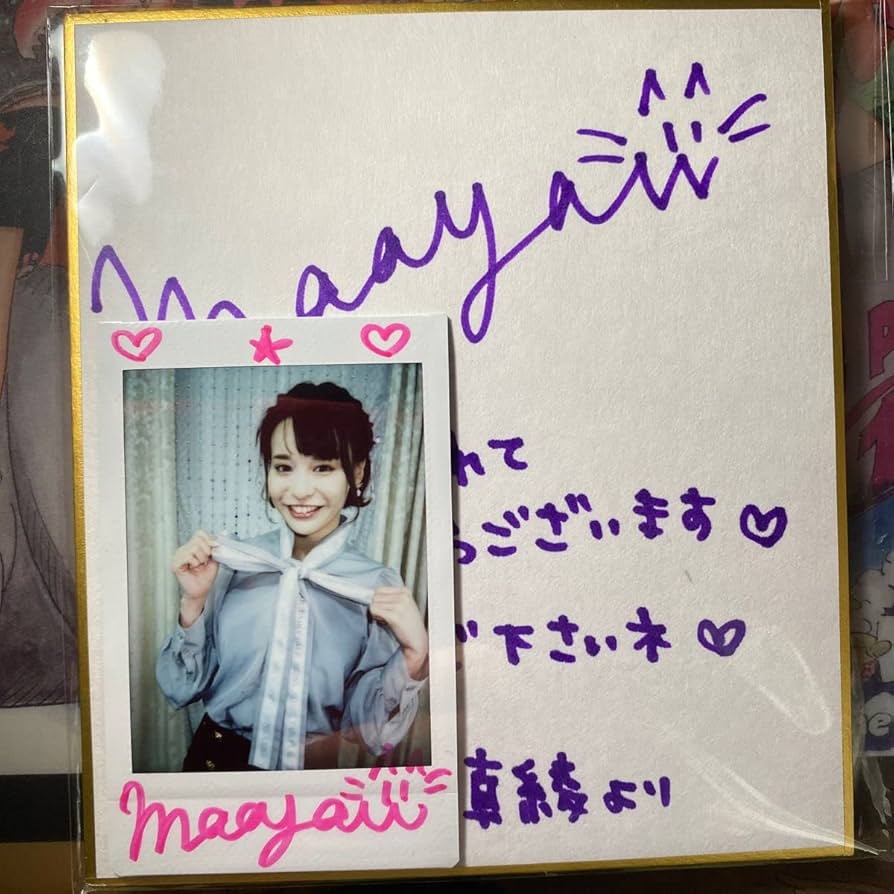 Maaya
れて
ございます♡
下さいネ♡
真綾より
Maaya